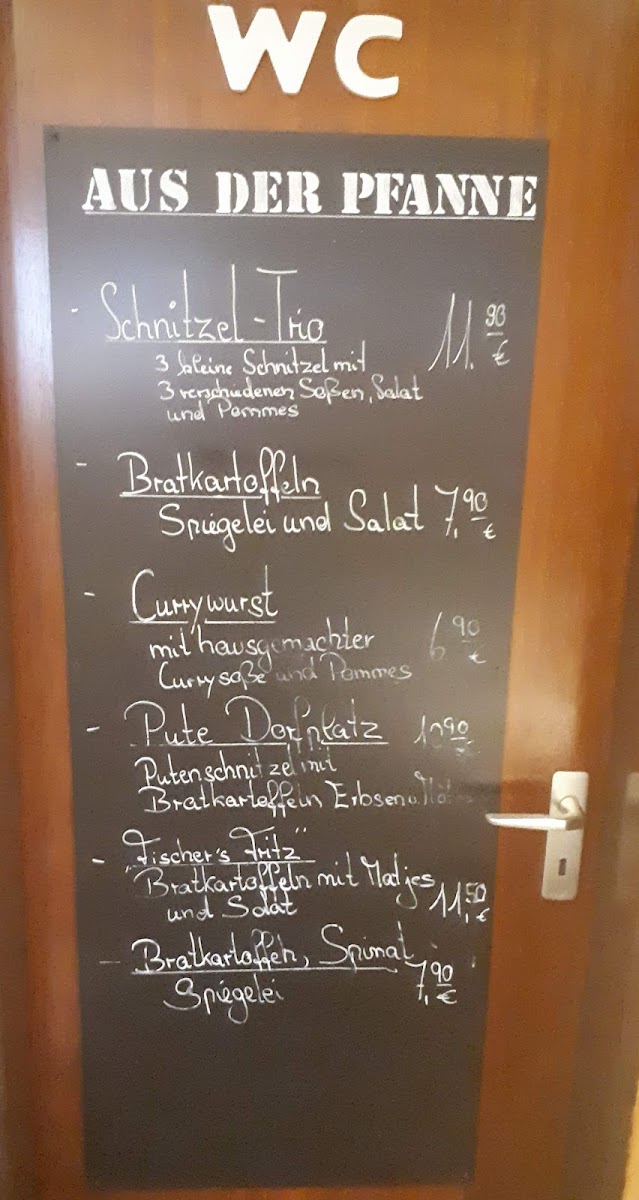 WC
AUS DER PFANNE
- Schnitzel-Trio 11.90 €
3 kleine Schnitzel mit
3 verschiedenen Soßen, Salat
und Pommes
- Bratkartoffeln
Spiegelei und Salat 7,90 €
- Currywurst
mit hausgemachter 6,90 €
Currysoße und Pommes
- Pute Dorfplatz 10,90 €
Putenschnitzel mit
Bratkartoffeln Erbsen u.
- "Fischer's Fritz"
Bratkartoffeln mit Matjes
und Salat 11,50 €
- Bratkartoffeln, Spinat
Spiegelei 7,90 €